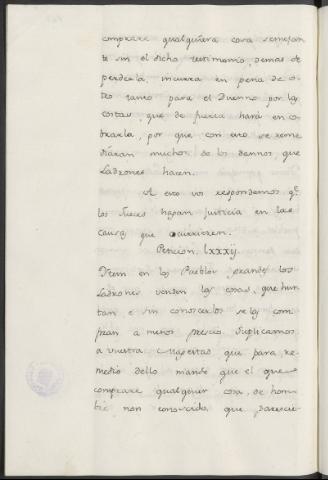 comprare qualquiera cosa semejan
te sin el dicho testimonio, demas de
perderla, incurra en pena de o-
tro tanto para el Duenno por las
costas, que de fuerza hará en co-
brarla, por que con esto se reme
diaran muchos de los dannos, que
Ladrones hacen.
A esto vos respondemos q.e
los Jueces hagan justicia en las
causas que ocurrieren.
Peticion, lxxxij.
Item en los Pueblos grandes los
Ladrones venden las cosas, que hur
tan e sin conoscerlos se las com
pran a menos prescio. Suplicamos
a vuestra Magestad, que para re-
medio dello mande que el que
comprare qualquier cosa, de hom-
bre non conoscido, que paresci